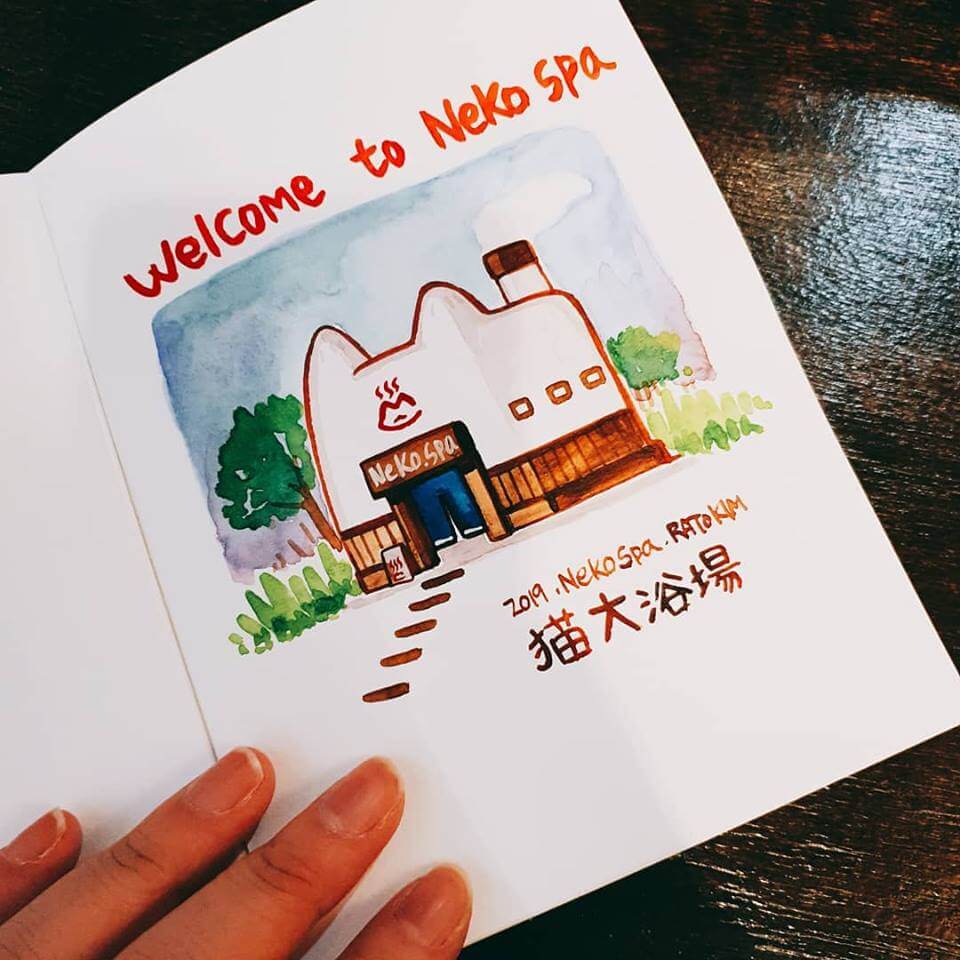 Welcome to Neko Spa
Neko.Spa
2019.NekoSpa.RATO KIM
猫大浴場